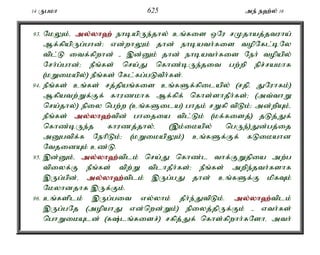 14 ருபமா 625 அந் நஹ்ல் 16
93. மேலும், அல்லாஹ் நாடியிருந்தால் உங்களை ஒரே சமுதாயத்தவராய்
ஆக்கியிருப்பான்; என்றாலும் தான் நாடியவர்களை வழிகேட்டிலே
விட்டு வைக்கிறான் - இன்னும் தான் நாடியவர்களை நேர் வழியில்
சேர்ப்பான்; நீங்கள் செய்து கொண்டிருந்தவை பற்றி நிச்சயமாக
(மறுமையில்) நீங்கள் கேட்கப்படுவீர்கள்.
94. நீங்கள் உங்கள் சத்தியங்களை உங்களுக்கிடையில் (சதி, துரோகம்)
ஆகியவற்றுக்குக் காரணமாக ஆக்கிக் கொள்ளாதீர்கள்; (அவ்வாறு
செய்தால்) நிலை பெற்ற (உங்களுடைய) பாதம் சறுகி விடும்; அன்றியும்,
நீங்கள் அல்லாஹ்வின் பாதையை விட்டும் (மக்களைத்) தடுத்துக்
கொண்டிருந்த காரணத்தால், (இம்மையில் பெருந்)துன்பத்தை
அனுபவிக்க நேரிடும்; (மறுமையிலும்) உங்களுக்குக் கடுமையான
வேதனையும் உண்டு.
95. இன்னும், அல்லாஹ்விடம் செய்து கொண்ட வாக்குறுதியை அற்ப
விலைக்கு நீங்கள் விற்று விடாதீர்கள்; நீங்கள் அறிந்தவர்களாக
இருப்பின், அல்லாஹ்விடம் இருப்பது தான் உங்களுக்கு மிகவும்
மேலானதாக இருக்கும்.
96. உங்களிடம் இருப்பவை எல்லாம் தீர்ந்துவிடும். அல்லாஹ்விடம்
இருப்பதே (அழியாது என்றென்றும்) நிலைத்திருக்கும் .. எவர்கள்
பொறுமையுடன் (கஷ்டங்களைச்) சகித்துக் கொள்கிறார்களோ, அவர்